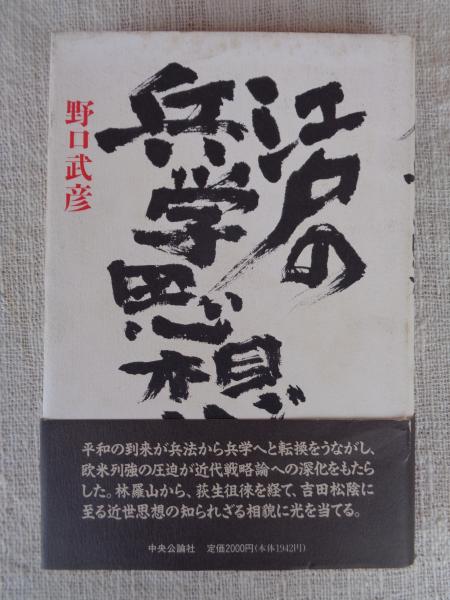 江戸の
兵学思想
野口武彦
平和の到来が兵法から兵学へと転換をうながし、
欧米列強の圧迫が近代戦略論への深化をもたら
した。林羅山から、荻生徂徠を経て、吉田松陰に
至る近世思想の知られざる相貌に光を当てる。
中央公論社 定価2000円(本体1942円)